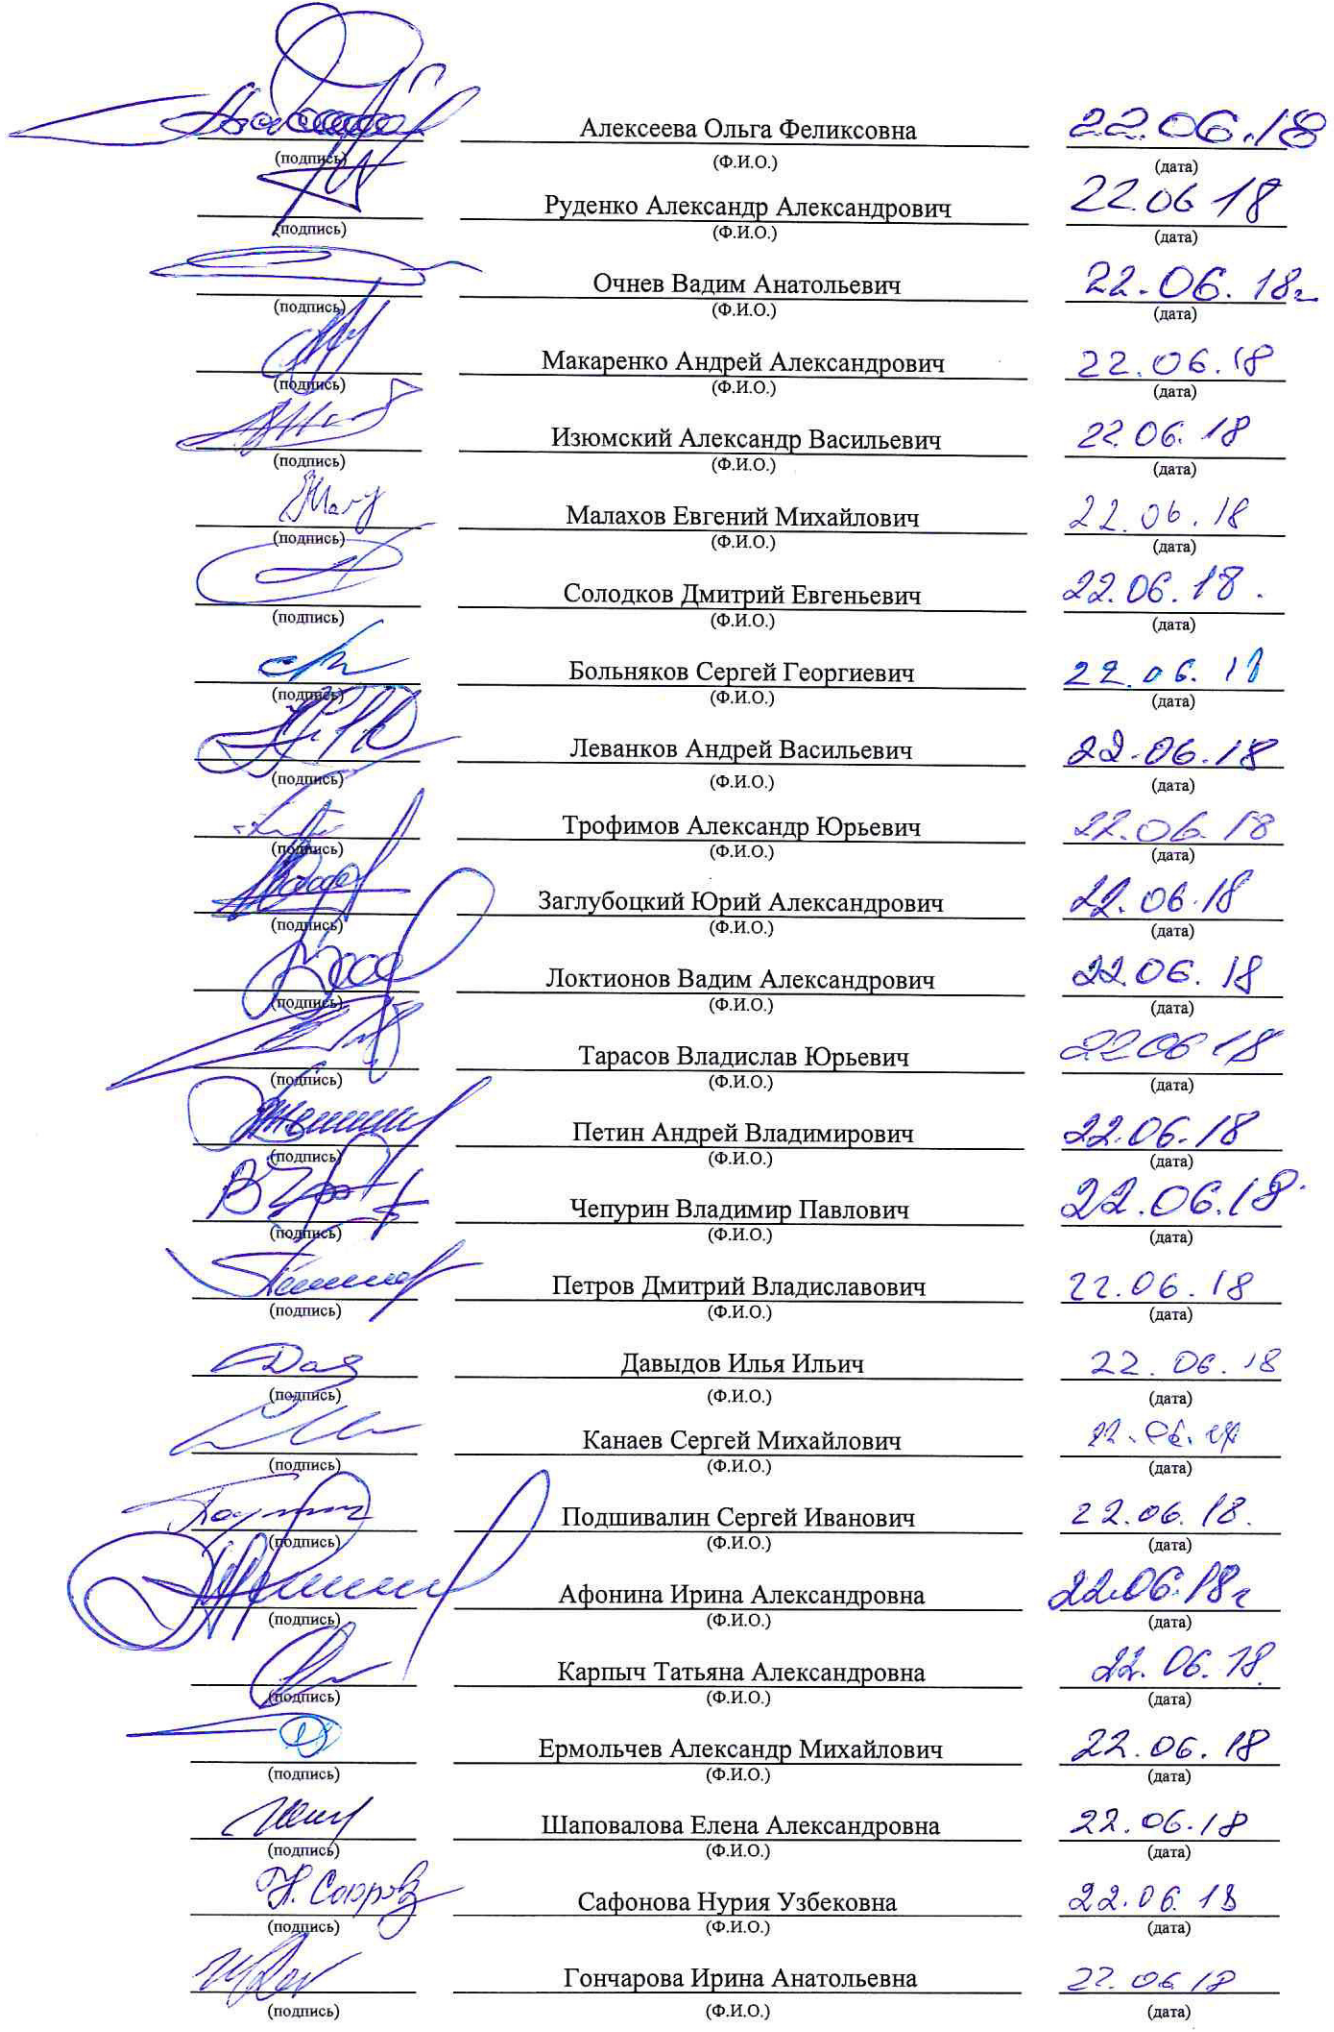 Алексеева Ольга Феликсовна 22.06.18
(подпись) (Ф.И.О.) (дата)
Руденко Александр Александрович 22.06 18
(подпись) (Ф.И.О.) (дата)
Очнев Вадим Анатольевич 22.06.18г
(подпись) (Ф.И.О.) (дата)
Макаренко Андрей Александрович 22.06.18
(подпись) (Ф.И.О.) (дата)
Изюмский Александр Васильевич 22.06.18
(подпись) (Ф.И.О.) (дата)
Малахов Евгений Михайлович 22.06.18
(подпись) (Ф.И.О.) (дата)
Солодков Дмитрий Евгеньевич 22.06.18.
(подпись) (Ф.И.О.) (дата)
Больняков Сергей Георгиевич 22.06.18
(подпись) (Ф.И.О.) (дата)
Леванков Андрей Васильевич 22.06.18
(подпись) (Ф.И.О.) (дата)
Трофимов Александр Юрьевич 22.06.18
(подпись) (Ф.И.О.) (дата)
Заглубоцкий Юрий Александрович 22.06.18
(подпись) (Ф.И.О.) (дата)
Локтионов Вадим Александрович 22.06.18
(подпись) (Ф.И.О.) (дата)
Тарасов Владислав Юрьевич 22.06 18
(подпись) (Ф.И.О.) (дата)
Петин Андрей Владимирович 22.06.18
(подпись) (Ф.И.О.) (дата)
Чепурин Владимир Павлович 22.06.18.
(подпись) (Ф.И.О.) (дата)
Петров Дмитрий Владиславович 22.06.18
(подпись) (Ф.И.О.) (дата)
Давыдов Илья Ильич 22.06.18
(подпись) (Ф.И.О.) (дата)
Канаев Сергей Михайлович 22.06.18
(подпись) (Ф.И.О.) (дата)
Подшивалин Сергей Иванович 22.06.18.
(подпись) (Ф.И.О.) (дата)
Афонина Ирина Александровна 22.06.18г
(подпись) (Ф.И.О.) (дата)
Карпыч Татьяна Александровна 22.06.18.
(подпись) (Ф.И.О.) (дата)
Ермольчев Александр Михайлович 22.06.18
(подпись) (Ф.И.О.) (дата)
Шаповалова Елена Александровна 22.06.18
(подпись) (Ф.И.О.) (дата)
Сафонова Нурия Узбековна 22.06.18
(подпись) (Ф.И.О.) (дата)
Гончарова Ирина Анатольевна 22.06.18
(подпись) (Ф.И.О.) (дата)